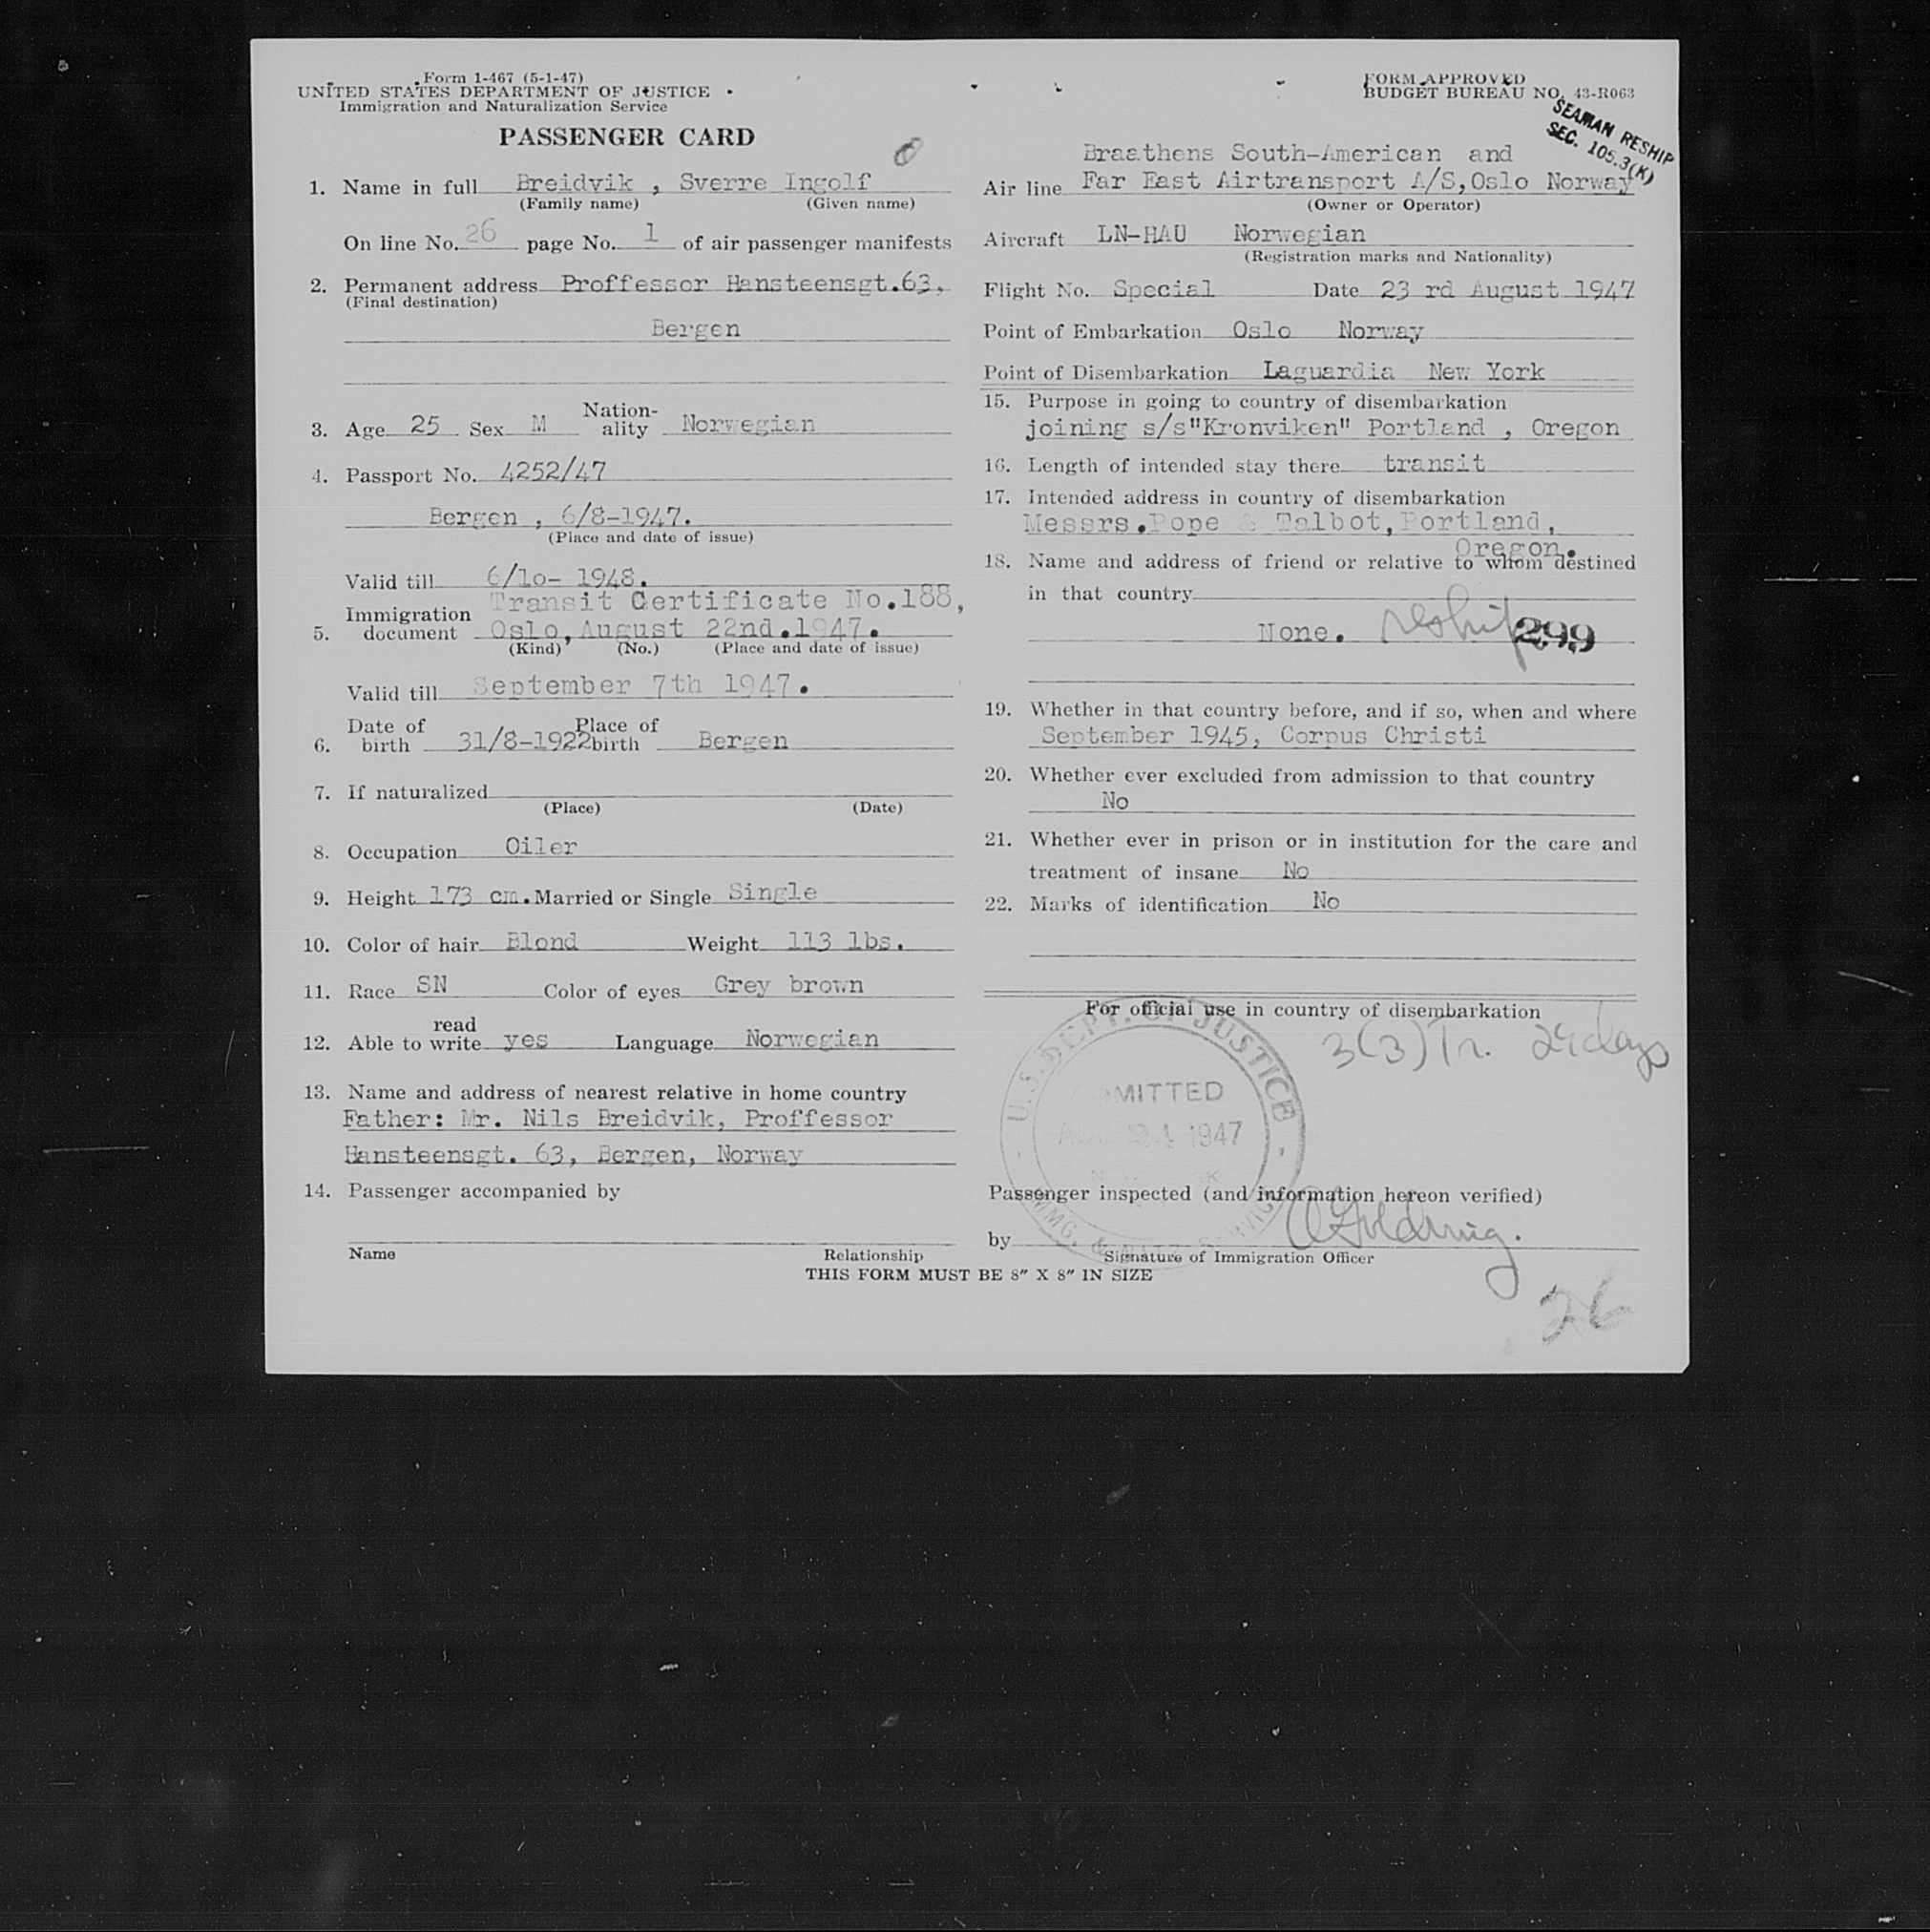 Form 1-467 (5-1-47)
UNITED STATES DEPARTMENT OF JUSTICE
Immigration and Naturalization Service
PASSENGER CARD
1. Name in full Breidvik , Sverre Ingolf
(Family name) (Given name)
On line No. 26 page No. 1 of air passenger manifests
2. Permanent address Proffessor Hansteensgt.63,
(Final destination)
Bergen
3. Age 25 Sex M Nation-
ality Norwegian
4. Passport No. 4252/47
Bergen , 6/8-1947.
(Place and date of issue)
Valid till 6/lo- 1948.
Immigration Transit Certificate No.188,
5. document Oslo, August 22nd.1947.
(Kind) (No.) (Place and date of issue)
Valid till September 7th 1947.
Date of Place of
6. birth 31/8-1922 birth Bergen
7. If naturalized
(Place) (Date)
8. Occupation Oiler
9. Height 173 cm. Married or Single Single
10. Color of hair Blond Weight 113 lbs.
11. Race SN Color of eyes Grey brown
read
12. Able to write yes Language Norwegian
13. Name and address of nearest relative in home country
Father: Mr. Nils Breidvik, Proffessor
Hansteensgt. 63, Bergen, Norway
14. Passenger accompanied by
Name Relationship
FORM APPROVED
BUDGET BUREAU NO. 43-R063
SEAMAN RESHIP
SEC. 105.3(K)
Braathens South-American and
Air line Far East Airtransport A/S,Oslo Norway
(Owner or Operator)
Aircraft LN-HAU Norwegian
(Registration marks and Nationality)
Flight No. Special Date 23 rd August 1947
Point of Embarkation Oslo Norway
Point of Disembarkation Laguardia New York
15. Purpose in going to country of disembarkation
joining s/s"Kronviken" Portland , Oregon
16. Length of intended stay there transit
17. Intended address in country of disembarkation
Messrs.Pope & Talbot,Portland,
Oregon.
18. Name and address of friend or relative to whom destined
in that country
None. reship 299
19. Whether in that country before, and if so, when and where
September 1945, Corpus Christi
20. Whether ever excluded from admission to that country
No
21. Whether ever in prison or in institution for the care and
treatment of insane No
22. Marks of identification No
For official use in country of disembarkation
3(3) Tr. 29 days
U.S. DEPT. OF JUSTICE
ADMITTED
1947
Passenger inspected (and information hereon verified)
by
Signature of Immigration Officer
THIS FORM MUST BE 8" X 8" IN SIZE
26